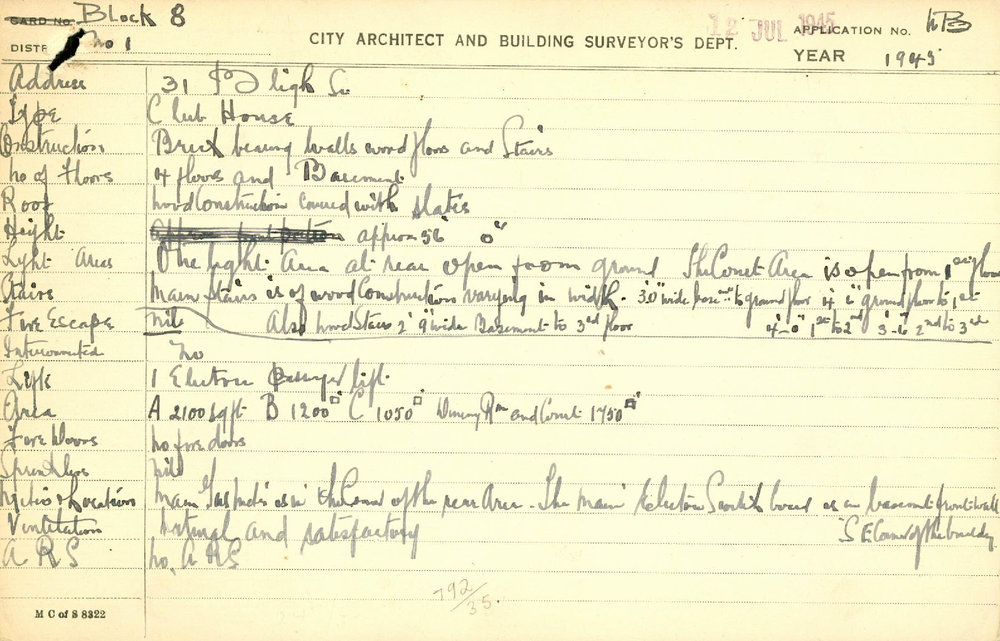 CARD NO. Block 8
12 JUL 1945
APPLICATION No. hB
DISTR No 1
CITY ARCHITECT AND BUILDING SURVEYOR'S DEPT.
YEAR 1945
Address 31 Bligh St
Type Club House
Construction Brick bearing walls wood floors and Stairs
No of Floors 4 floors and Basement
Roof wood Construction covered with slates
Height approx 56' 0"
Light Areas One light Area at rear open from ground The Court Area is open from 1st floor
Stairs Main Stairs is of wood Construction varying in width. 3'0" wide base to ground floor 4' 6" ground floor to 1st
Fire Escape Nil Also wood Stairs 2' 9" wide Basement to 3rd floor 4'-0" 1st to 2nd 3'-6" 2nd to 3rd
Interconnected No
Lift 1 Electric Passenger lift
Area A 2100 sq ft B 1200 C 1050 Dining Rm and Court 1750
Fire Doors no fire doors
Sprinklers Nil
Location Main Gas is in the of the rear Area. The main Electric Switch board is on basement front wall
S E Corner of the building
Ventilation Natural and satisfactory
A R S No, A R S
792/35.
M C of S 8322